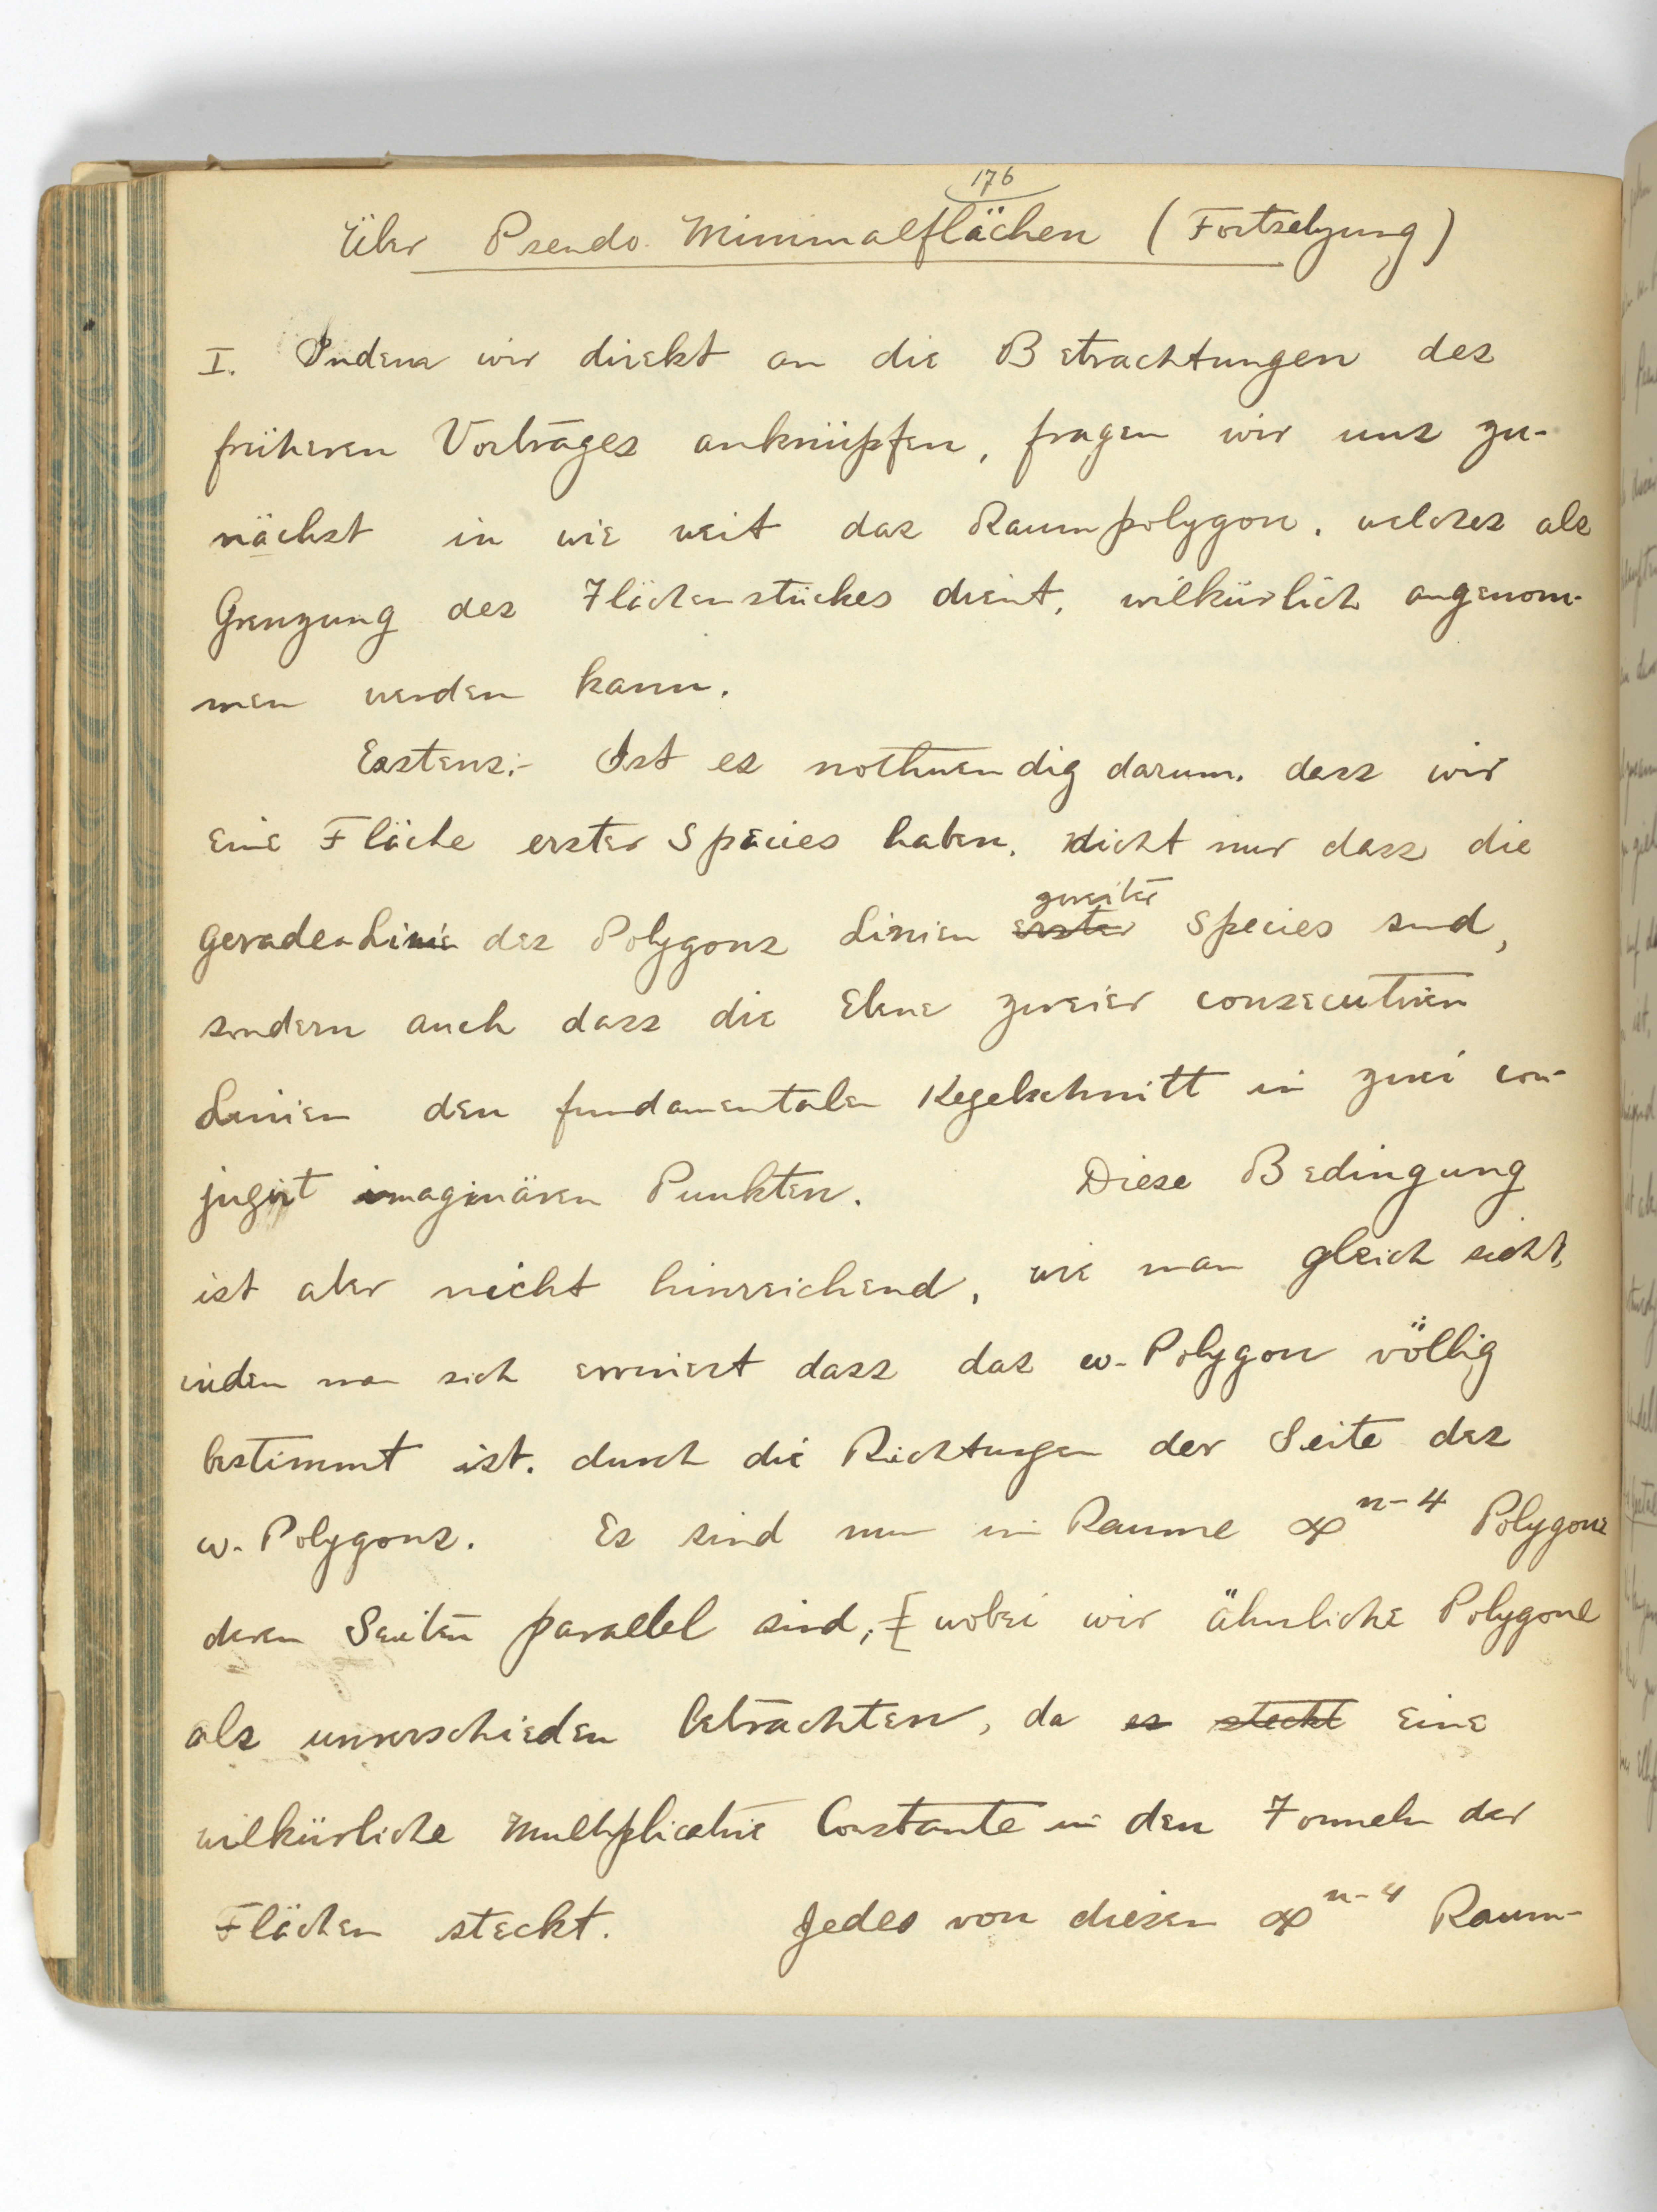 176
Über Pseudo. Minimalflächen (Fortsetzung)
I. Indem wir direkt an die Betrachtungen des
früheren Vortrages anknüpfen, fragen wir uns zu-
nächst in wie weit das Raumpolygon, welches als
Grenzung des Flächenstückes dient, wilkürlich angenom-
men werden kann.
Erstens:- Ist es nothwendig darum, dass wir
eine Fläche erster Species haben, nicht nur dass die
geraden Linien des Polygons Linien erster zweiter Species sind,
sondern auch dass die Ebene zweier consecutiven
Linien den fundamentalen Kegelschnitt in zwei con-
jugirt imaginären Punkten. Diese Bedingung
ist aber nicht hinreichend, wie man gleich sieht,
indem man sich erinnert dass das w-Polygon völlig
bestimmt ist, durch die Richtungen der Seite des
w-Polygons. Es sind nun im Raume ∞^{n-4} Polygone
deren Seiten parallel sind, [wobei wir ähnliche Polygone
als unverschieden betrachten, da es steckt eine
wilkürliche multiplicative Constante in den Formeln der
Flächen steckt. Jedes von diesen ∞^{n-4} Raum-